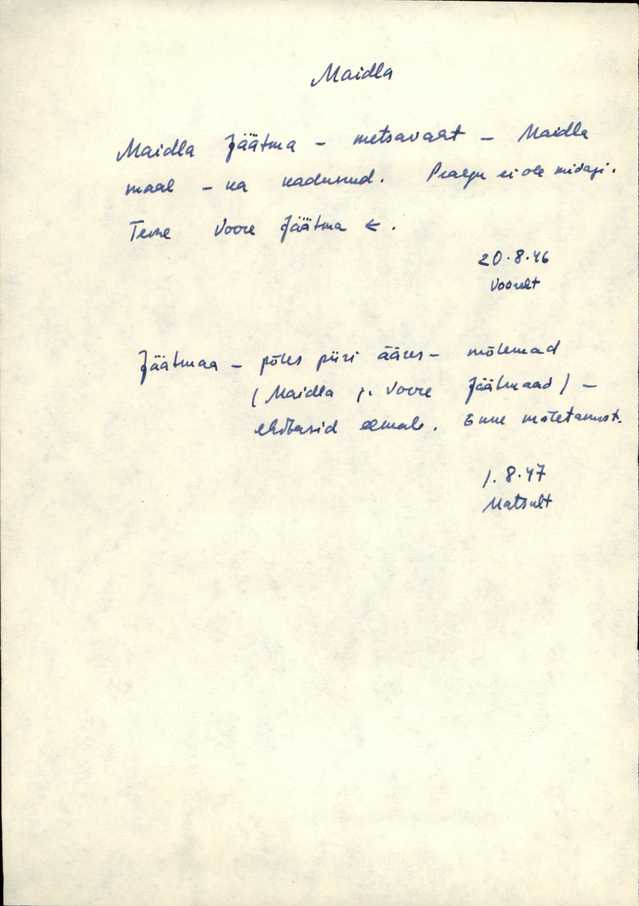 Maidla
Maidla Jäätma – metsavaat – Maidla
maal – ka kadunud. Praegu ei ole midagi.
Teine Voore Jäätma ←.
20.8.46
Voorelt
Jäätmaa – põles piiri ääres – mõlemad
(Maidla ja Voore Jäätmaad) –
ehitasid eemale. Enne mõtetamist.
1.8.47
Matsult